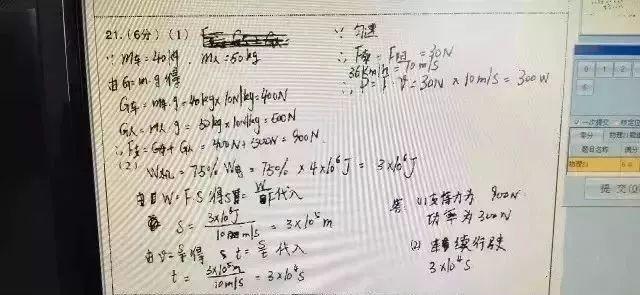 21.(6分) (1)
∵ m车=40kg, m人=50kg
由G=mg得
G车=m车g=40kg×10N/kg=400N
G人=m人g=50kg×10N/kg=500N
∴F支=G车+G人=400N+500N=900N
(2)
W机=75%W电=75%×4×10⁶J=3×10⁶J
由W=F·S得S= 代入
S=3×10⁶J/ m/s=3×10⁵m
由v=s/t得 t=s/v 代入
t=3×10⁵m/10m/s=3×10⁴s
∵匀速
∴F牵=F阻=30N
36km/h=10m/s
∴P=F·v=30N×10m/s=300W
答:(1)支持力为900N
功率为300W
(2) 续行驶
3×10⁴s
0 1 2
一次提交
题目名称 满分
物理21
提交